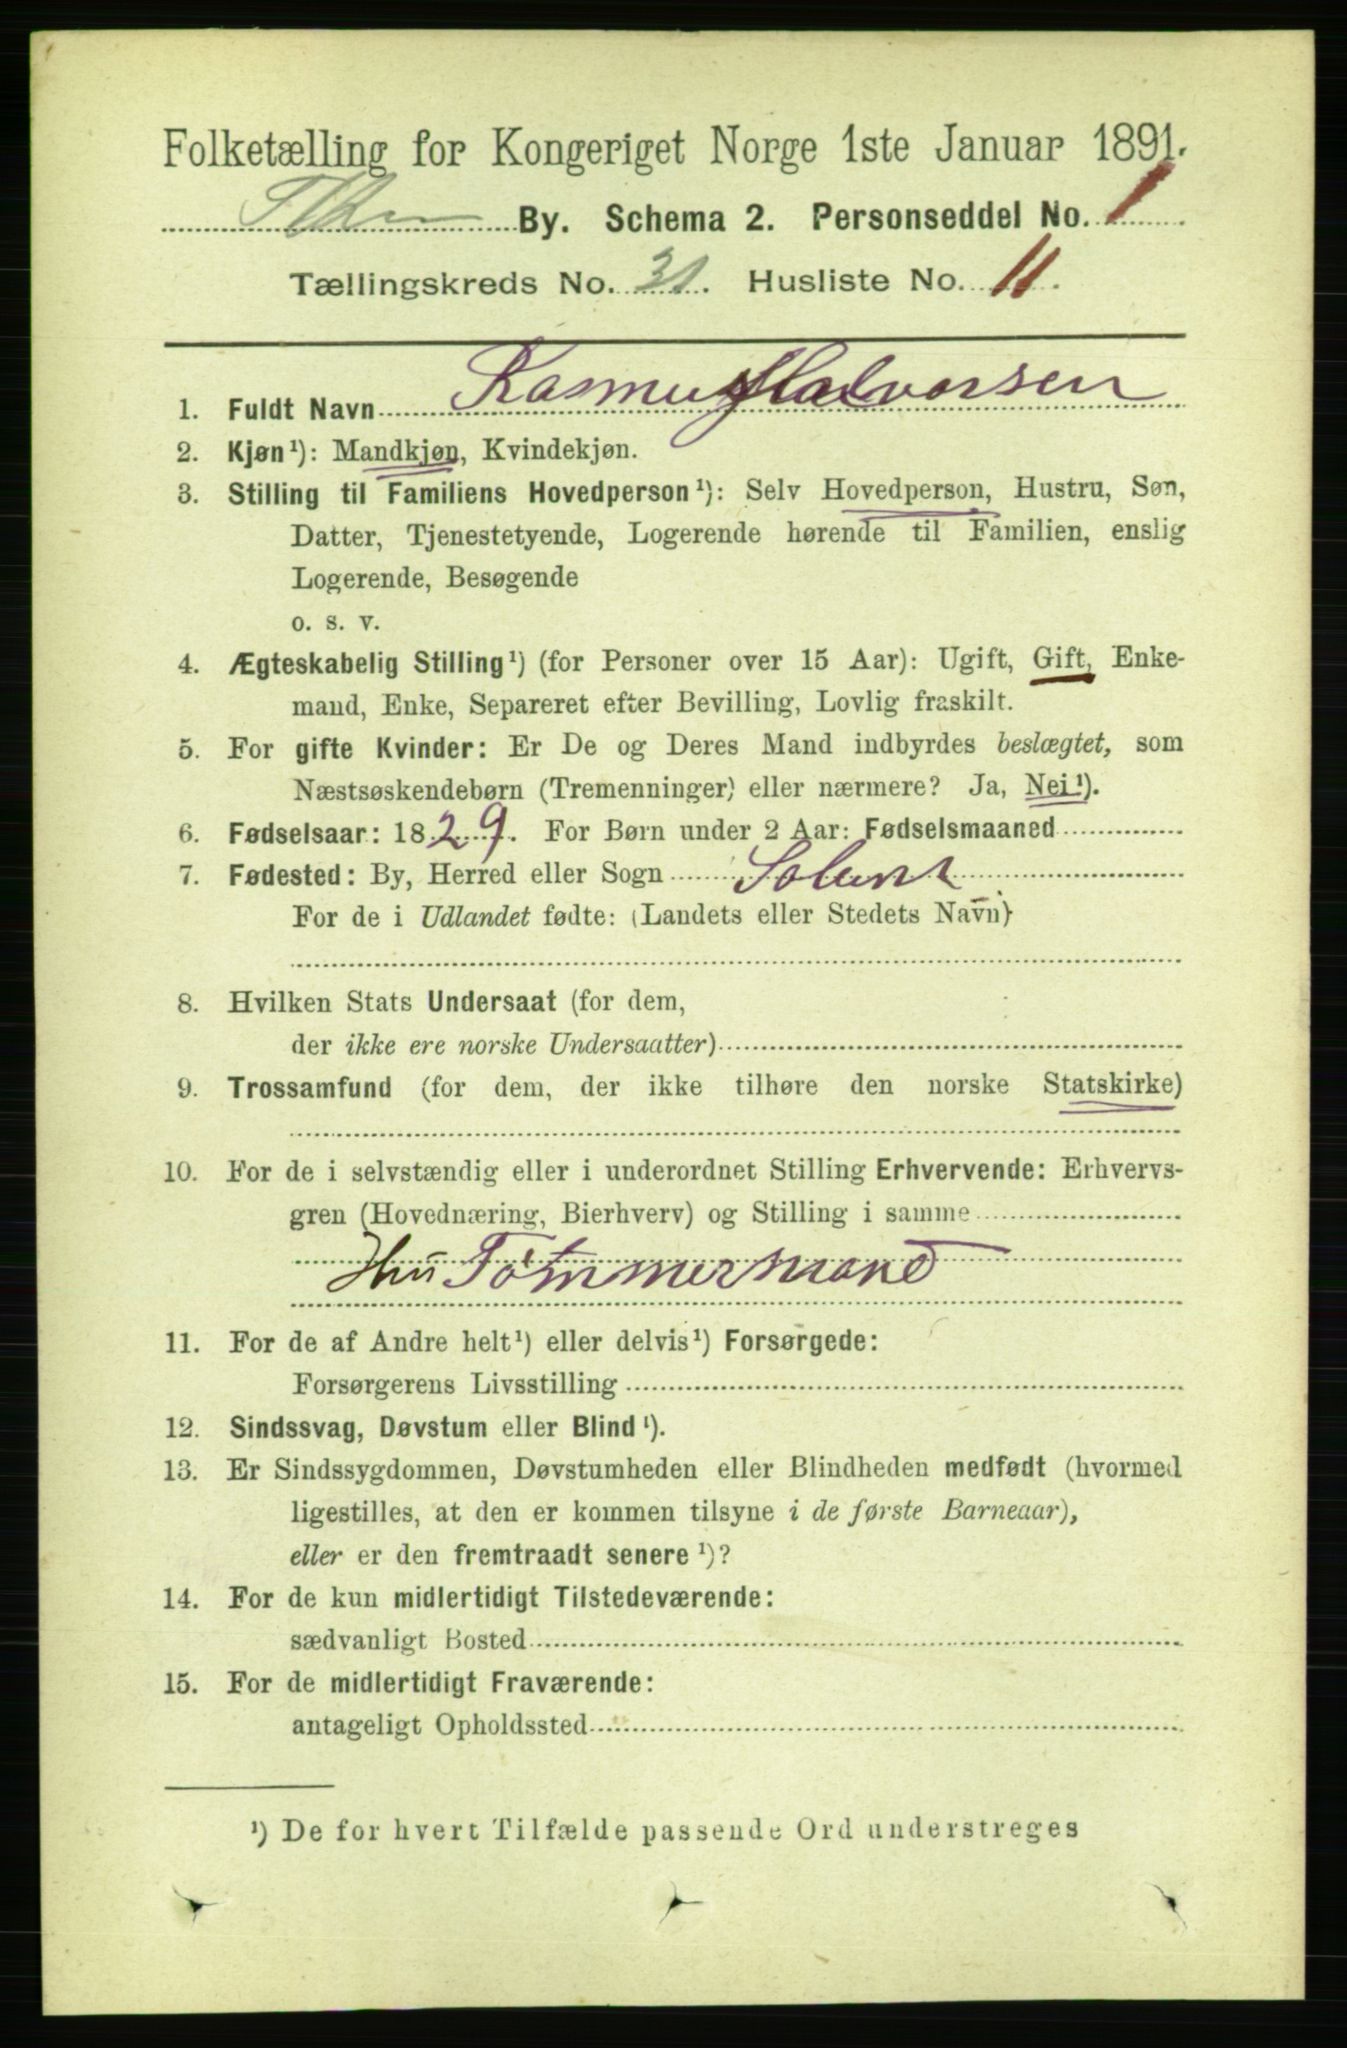 Folketælling for Kongeriget Norge 1ste Januar 1891.
By. Schema 2. Personseddel No. 1
Tællingskreds No. 31. Husliste No. 11.
1. Fuldt Navn Rasmus Halvorsen
2. Kjøn¹): Mandkjøn, Kvindekjøn.
3. Stilling til Familiens Hovedperson¹): Selv Hovedperson, Hustru, Søn,
Datter, Tjenestetyende, Logerende hørende til Familien, enslig
Logerende, Besøgende
o. s. v.
4. Ægteskabelig Stilling¹) (for Personer over 15 Aar): Ugift, Gift, Enke-
mand, Enke, Separeret efter Bevilling, Lovlig fraskilt.
5. For gifte Kvinder: Er De og Deres Mand indbyrdes beslægtet, som
Næstsøskendebørn (Tremenninger) eller nærmere? Ja, Nei¹).
6. Fødselsaar: 1829. For Børn under 2 Aar: Fødselsmaaned
7. Fødested: By, Herred eller Sogn
For de i Udlandet fødte: (Landets eller Stedets Navn)
8. Hvilken Stats Undersaat (for dem,
der ikke ere norske Undersaatter)
9. Trossamfund (for dem, der ikke tilhøre den norske Statskirke)
10. For de i selvstændig eller i underordnet Stilling Erhvervende: Erhvervs-
gren (Hovednæring, Bierhverv) og Stilling i samme
Tømmermand
11. For de af Andre helt¹) eller delvis¹) Forsørgede:
Forsørgerens Livsstilling
12. Sindssvag, Døvstum eller Blind¹).
13. Er Sindssygdommen, Døvstumheden eller Blindheden medfødt (hvormed
ligestilles, at den er kommen tilsyne i de første Barneaar),
eller er den fremtraadt senere¹)?
14. For de kun midlertidigt Tilstedeværende:
sædvanligt Bosted
15. For de midlertidigt Fraværende:
antageligt Opholdssted
¹) De for hvert Tilfælde passende Ord understreges